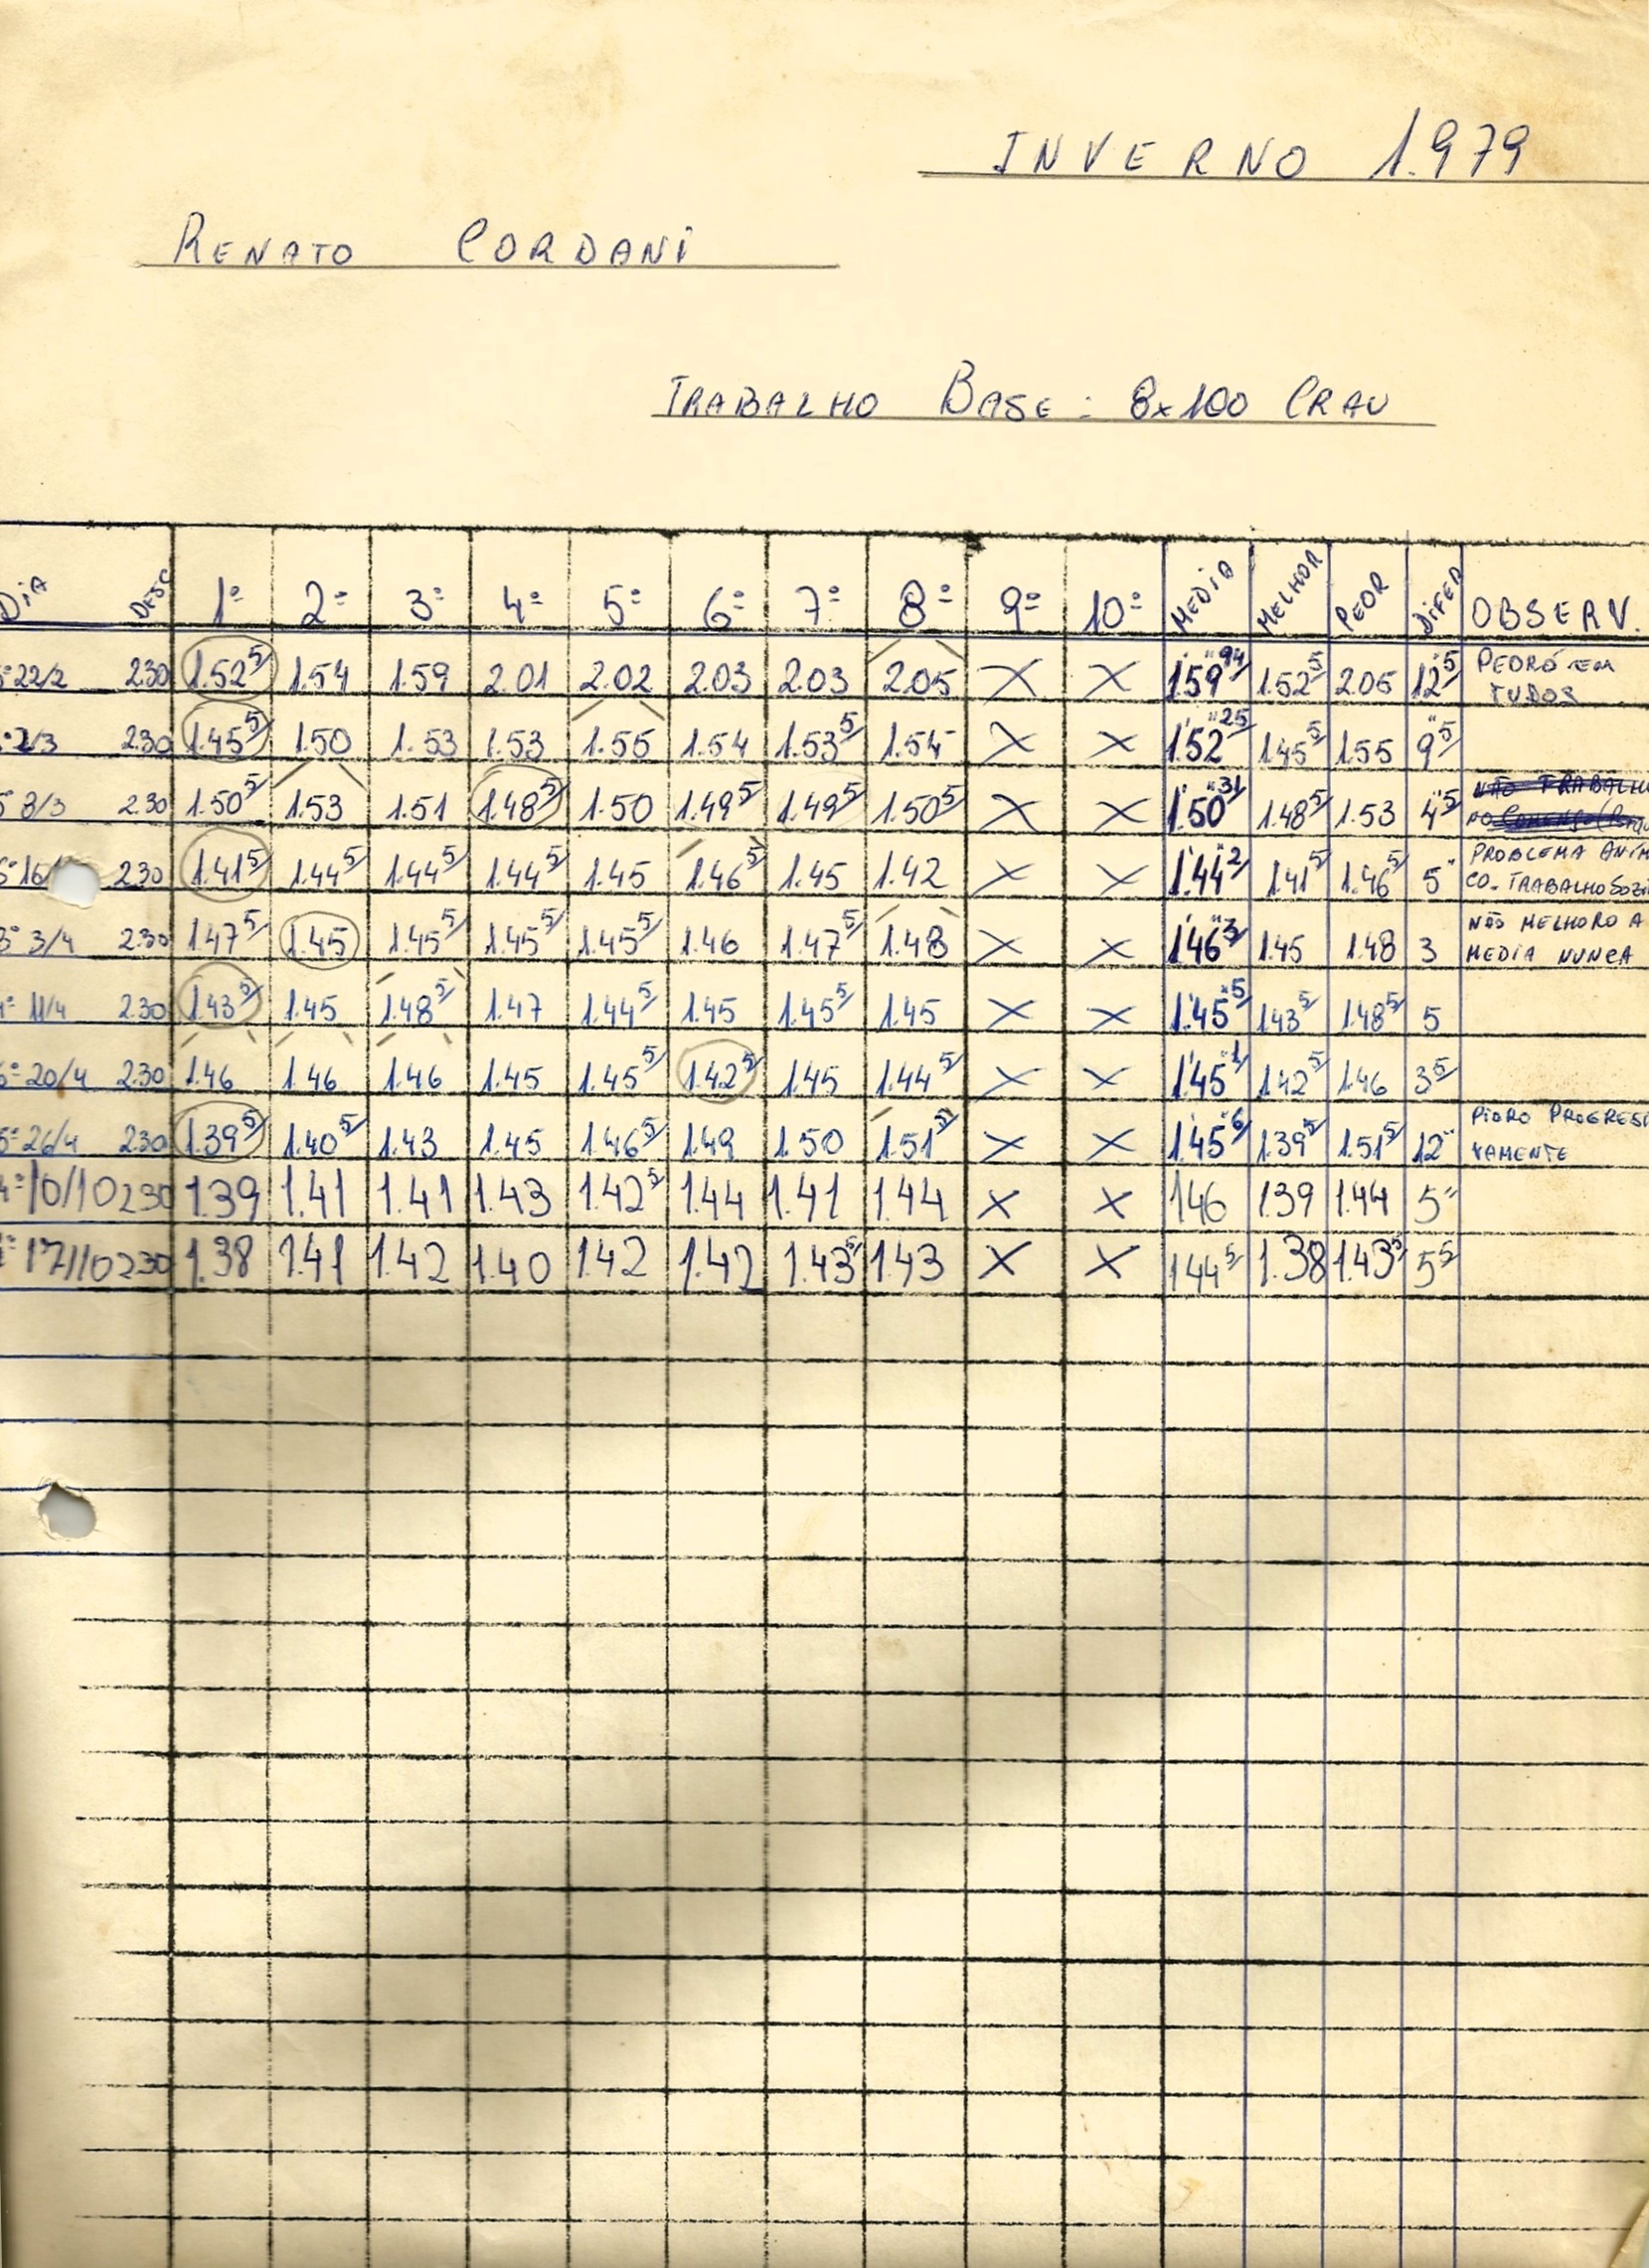 INVERNO 1.979
RENATO CORDANI
TRABALHO BASE: 8x100 CRAU
DIA DESC 1º 2º 3º 4º 5º 6º 7º 8º 9º 10º MEDIA MELHOR PEOR DIFER OBSERV.
5º 22/2 2.30 1.52⁵ 1.54 1.59 2.01 2.02 2.03 2.03 2.05 X X 1'59"94 1.52⁵ 2.05 12"5 PEDRO EM
TUDOS
2/3 2.30 1.45⁵ 1.50 1.53 1.53 1.55 1.54 1.53⁵ 1.54 X X 1'52"25 1.45⁵ 1.55 9"5
5º 8/3 2.30 1.50⁵ 1.53 1.51 1.48⁵ 1.50 1.49⁵ 1.49⁵ 1.50⁵ X X 1'50"31 1.48⁵ 1.53 4"5 NÃO TRABALHO
NO COMENSO
6º 16 2.30 1.41⁵ 1.44⁵ 1.44⁵ 1.44⁵ 1.45 1.46⁵ 1.45 1.42 X X 1'44"2 1.41⁵ 1.46⁵ 5" PROBLEMA ANIM
CO. TRABALHO SOZI
3º 3/4 2.30 1.47⁵ 1.45 1.45⁵ 1.45⁵ 1.45⁵ 1.46 1.47⁵ 1.48 X X 1'46"3 1.45 1.48 3 NÃO MELHORO A
MEDIA NUNCA
4º 11/4 2.30 1.43⁵ 1.45 1.48⁵ 1.47 1.44⁵ 1.45 1.45⁵ 1.45 X X 1'45"5 1.43⁵ 1.48⁵ 5
6º 20/4 2.30 1.46 1.46 1.46 1.45 1.45⁵ 1.42⁵ 1.45 1.44⁵ X X 1'45"1 1.42⁵ 1.46 3⁵
5º 26/4 2.30 1.39⁵ 1.40⁵ 1.43 1.45 1.46⁵ 1.49 1.50 1.51⁵ X X 1'45"6 1.39⁵ 1.51⁵ 12" PIORO PROGRESI
VAMENTE
4º 10/10 230 1.39 1.41 1.41 1.43 1.42⁵ 1.44 1.41 1.44 X X 146 1.39 1.44 5"
17/10 230 1.38 1.41 1.42 1.40 1.42 1.42 1.43⁵ 1.43 X X 144⁵ 1.38 1.43⁵ 5⁵